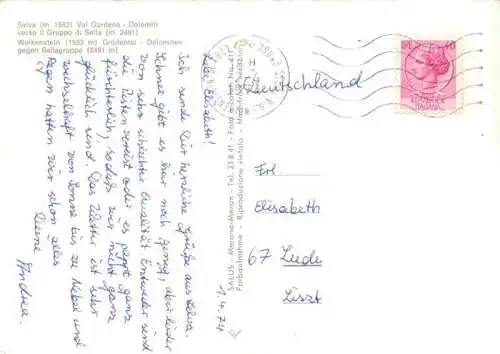 Selva (m. 1563) Val Gardena - Dolomiti
verso il Gruppo di Sella (m. 2491)
Wolkenstein (1563 m) Grödental - Dolomiten
gegen Sellagruppe (2491 m)
Liebe Elisabeth!
Ich sende Dir herzliche Grüße aus Selva.
Schnee gibt es hier noch genug, aber leider
von sehr schlechter Qualität. Entweder sind
die Pisten vereist oder es pappt ganz
fürchterlich, sodaß wir nicht ganz
glücklich sind. Das Wetter ist sehr
wechselhaft von Sonne bis zu Nebel und
Regen hatten wir schon alles.
Deine
Andrea
1.4.74
SALUS - Merano-Meran - Tel. 23841 - Foto a colori
Farbaufnahme - Riproduzione vietata
Deutschland
Frl.
Elisabeth
67 Lu
Liszt